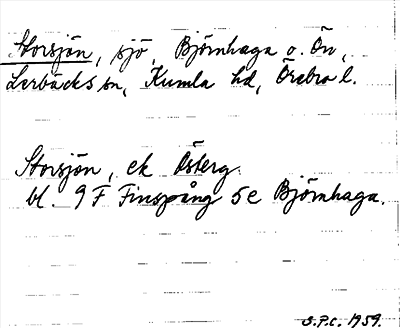 Storsjön, sjö, Björnhaga o. Ön,
Lerbäcks sn, Kumla hd, Örebro l.
Storsjön, ek Österg.
bl. 9 F Finspång 5 e Björnhaga.
S.P.C. 1959.